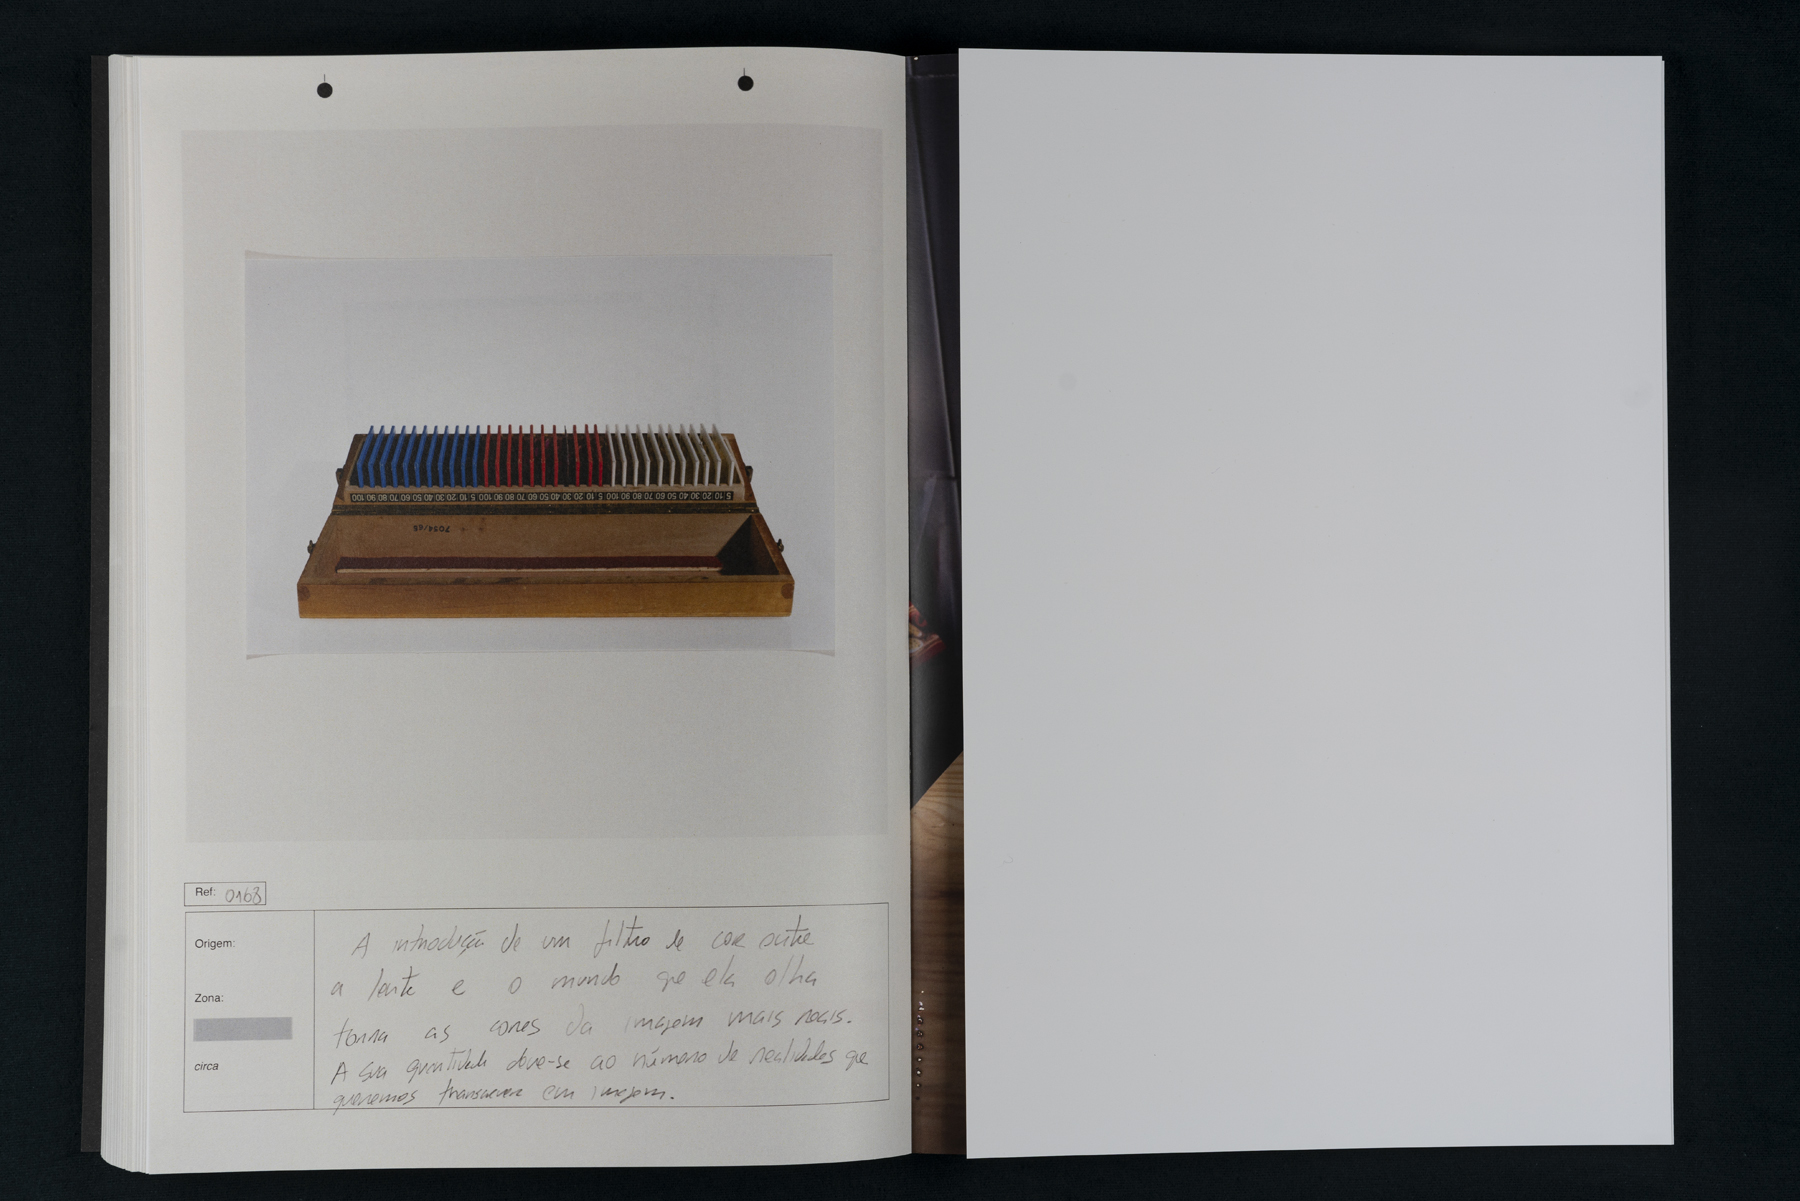 100 90 80 70 60 50 40 30 20 10 5 100 90 80 70 60 50 40 30 20 10 5 100 90 80 70 60 50 40 30 20 10 5
7054/65
Ref: 0168
Origem:
Zona:
circa
A introdução de um filtro de cor entre
a lente e o mundo que ela olha
torna as cores da imagem mais reais.
A sua quantidade deve-se ao número de realidades que
queremos transcrever em imagem.